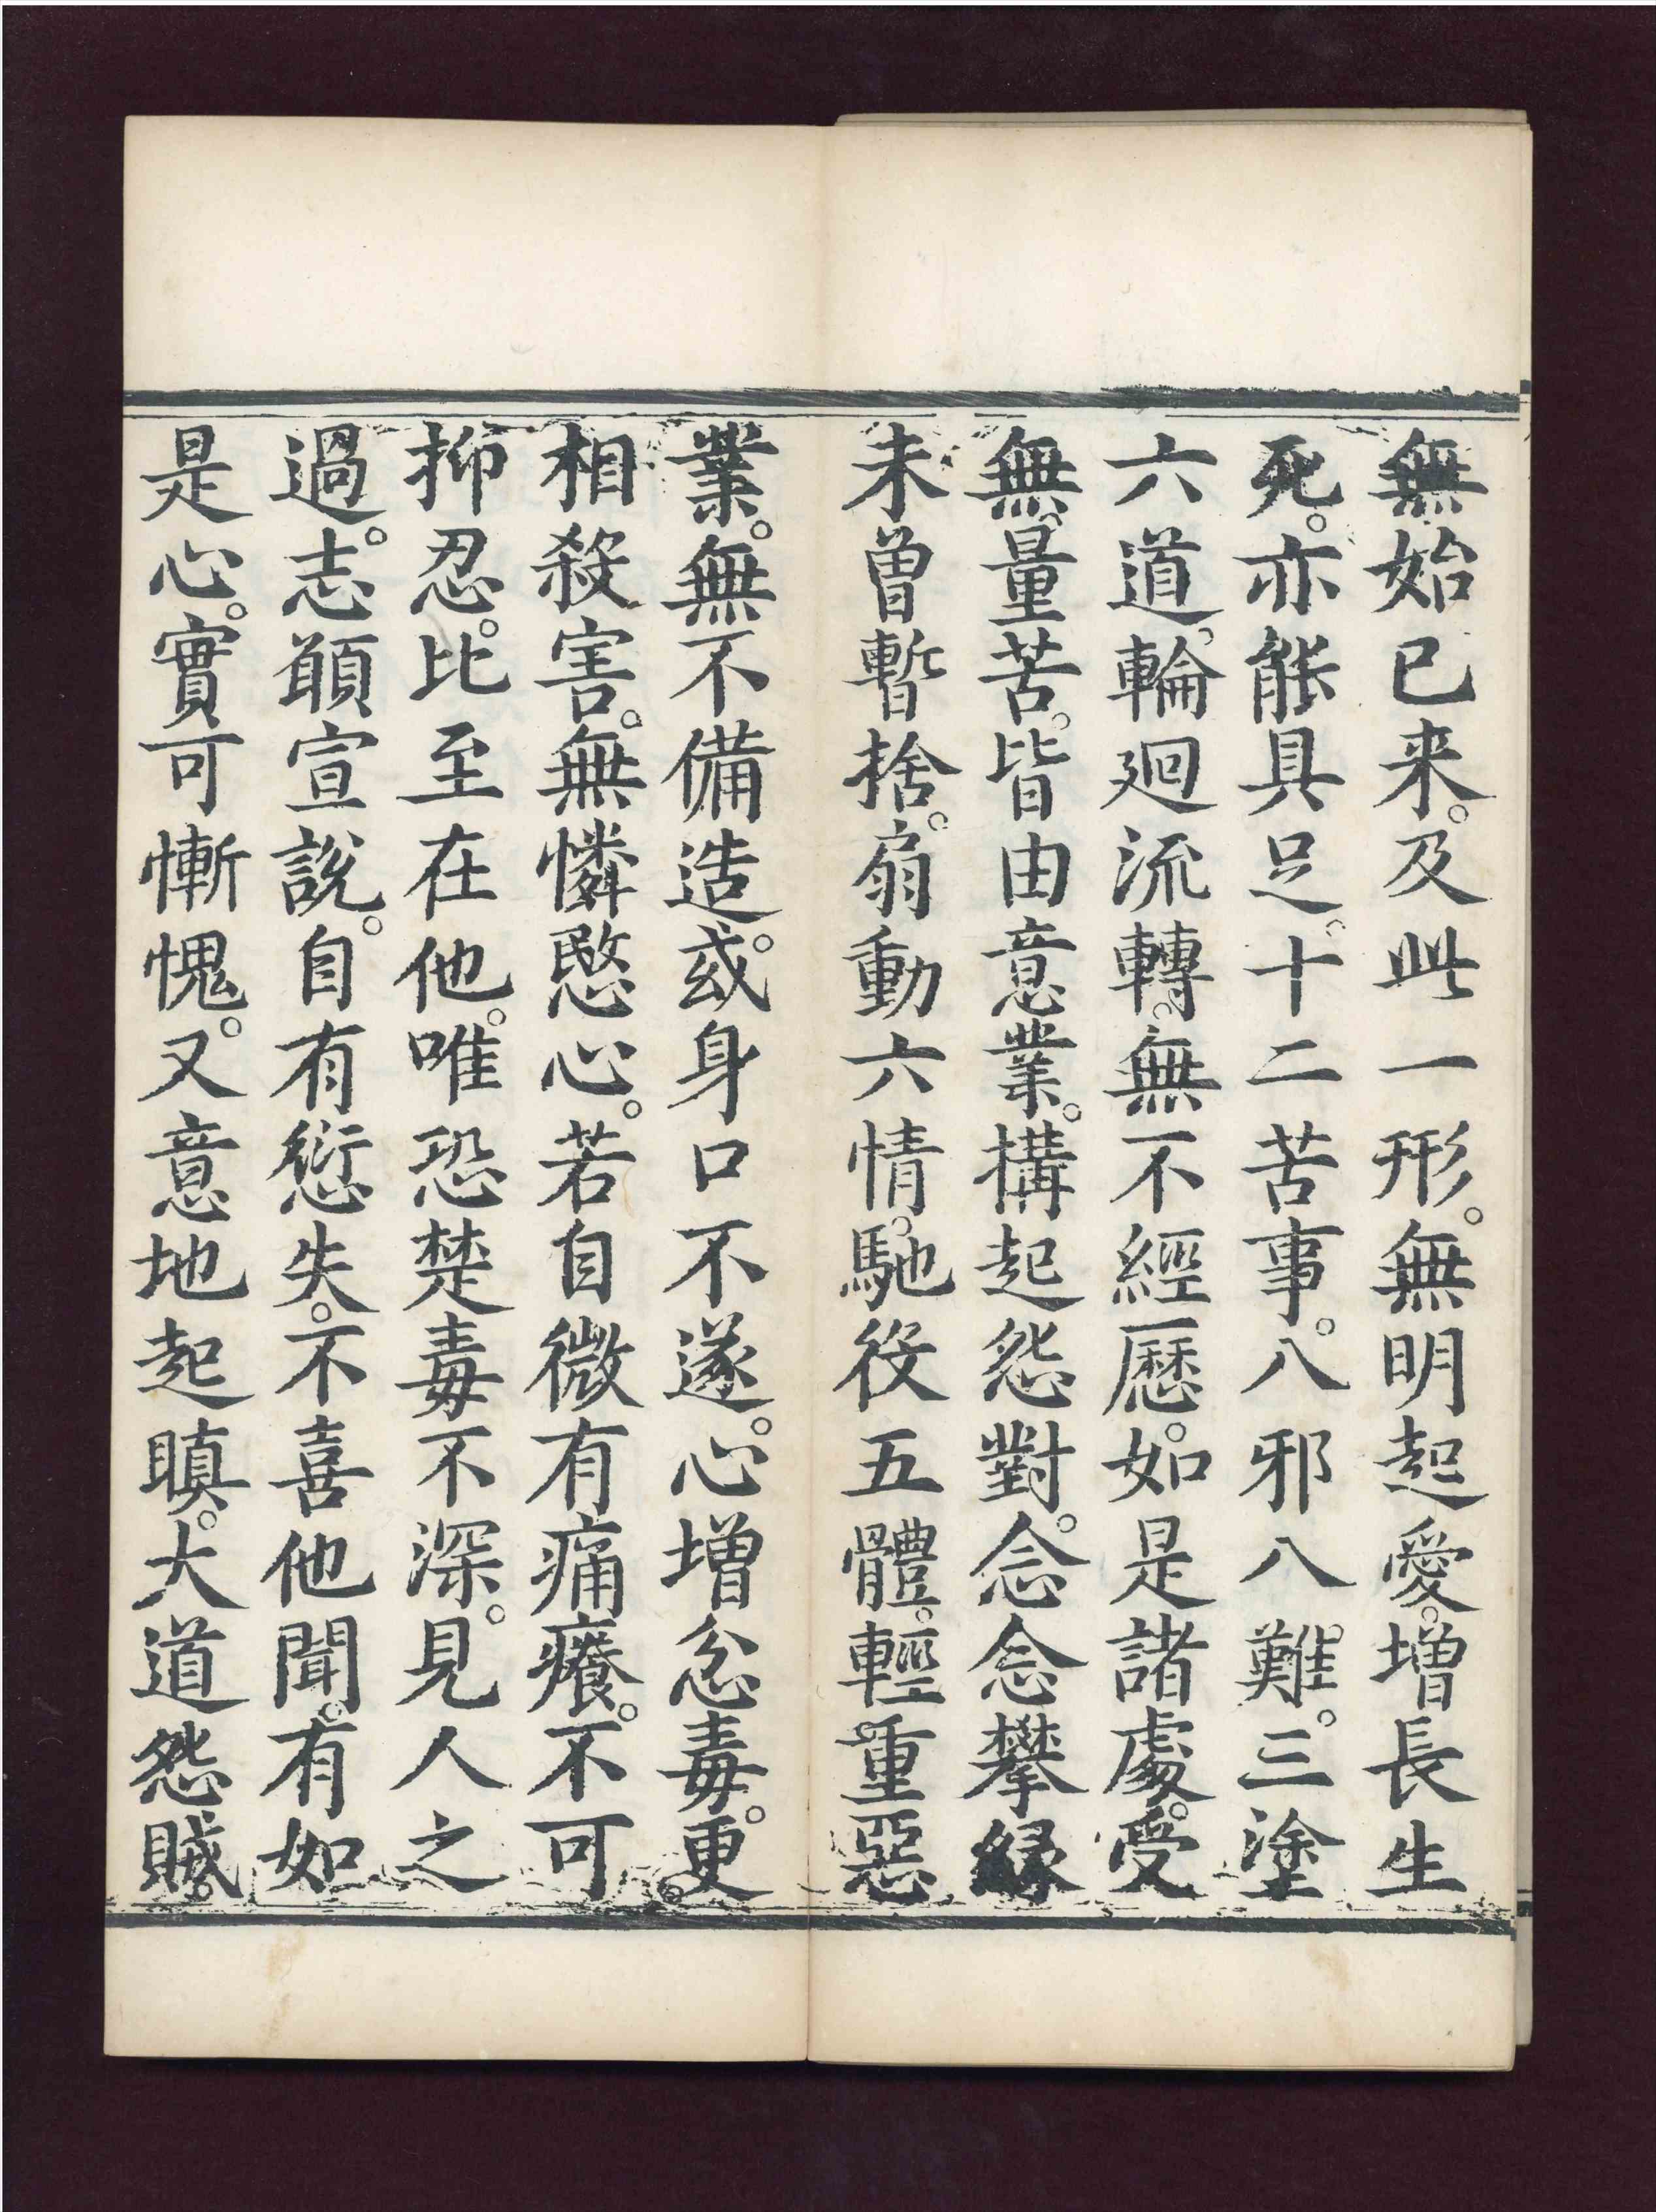 無始已来。及此一形。無明起愛。增長生
死。亦能具足。十二苦事。八邪八難。三塗
六道。輪廻流轉。無不經歷。如是諸處。受
無量苦。皆由意業。構起怨對。念念攀緣
未曾暫捨。扇動六情。馳役五體。輕重惡
業。無不備造。或身口不遂。心增忿毒。更
相殺害。無憐愍心。若自微有痛癢。不可
抑忍。比至在他。唯恐楚毒不深。見人之
過。志願宣說。自有愆失。不喜他聞。有如
是心。實可慚愧。又意地起瞋。大道怨賊。